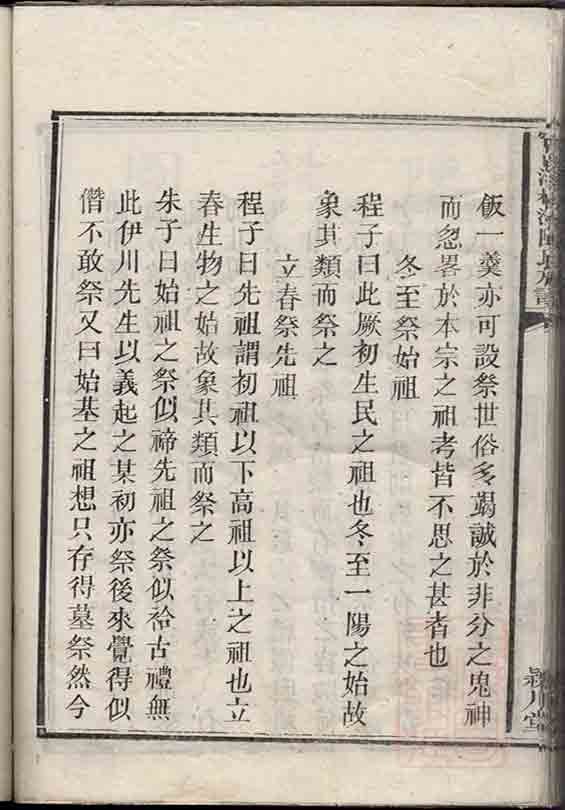 飯一羹亦可設祭世俗多竭誠於非分之鬼神
而忽畧於本宗之祖考皆不思之甚者也
冬至祭始祖
程子曰此厥初生民之祖也冬至一陽之始故
象其類而祭之
立春祭先祖
程子曰先祖謂初祖以下高祖以上之祖也立
春生物之始故象其類而祭之
朱子曰始祖之祭似禘先祖之祭似祫古禮無
此伊川先生以義起之某初亦祭後來覺得似
僭不敢祭又曰始基之祖想只存得墓祭然今
潁川堂